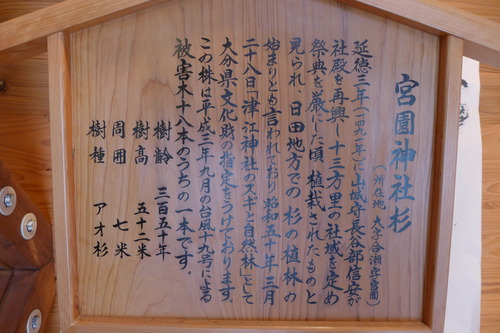 宮園神社杉
(所在地 大字合瀬字宮園)
延徳三年(一四九一)に山城守長谷部信安が
社殿を再興し十三方里の社域を定め
祭典を厳にした頃、植栽されたものと
見られ、日田地方での杉の植林の
始まりとも言われており昭和五十年三月
二十八日「津江神社のスギと自然林」として
大分県文化財の指定をうけております。
この株は平成三年九月の台風十九号による
被害木十八本のうちの一本です。
樹齢 三百五十年
樹高 五十二米
周囲 七米
樹種 アオ杉